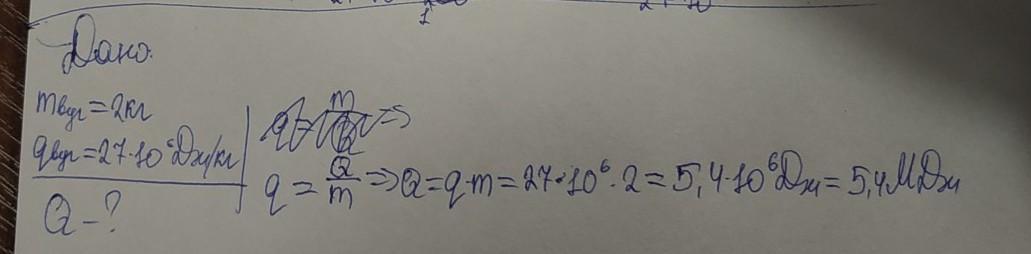 Дано:
mвуг = 2кг
qвуг = 27·10⁶Дж/кг
Q - ?
q = Q/m => Q = q·m = 27·10⁶·2 = 5,4·10⁶Дж = 5,4МДж